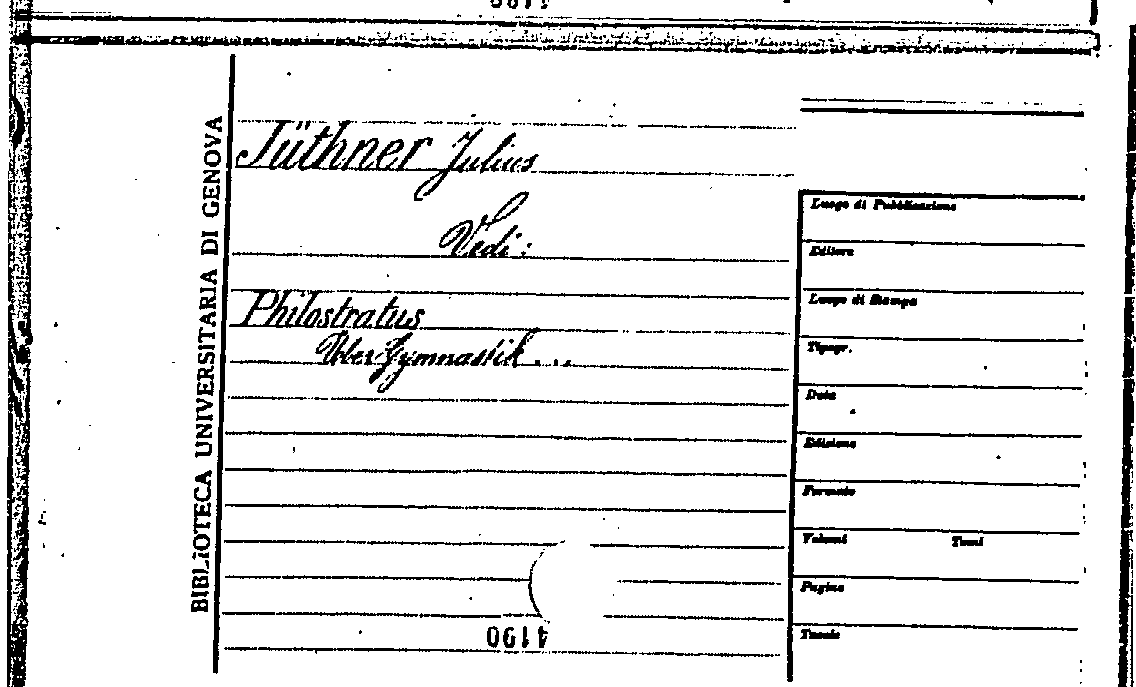 BIBLIOTECA UNIVERSITARIA DI GENOVA
Jüthner Julius
Vedi:
Philostratus
Über Gymnastik...
Luogo di Pubblicazione
Editore
Luogo di Stampa
Tipogr.
Data
Edizione
Formato
Volumi Tomi
Pagine
Tavole
4190